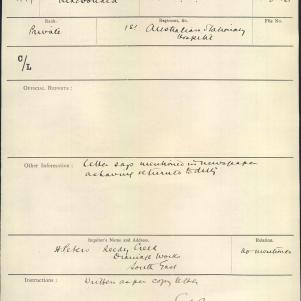 Macdonald
Rank: Regiment, &c. File No.
Private 1st Australian Stationary
Hospital
C/L
OFFICIAL REPORTS:
Other Information: Letter says mentioned in newspaper
as having returned to duty
Inquirer's Name and Address. Relation.
H. Peters Reedy Creek no mentioned
Drainage Works
South East
Instructions: Written as per copy letter